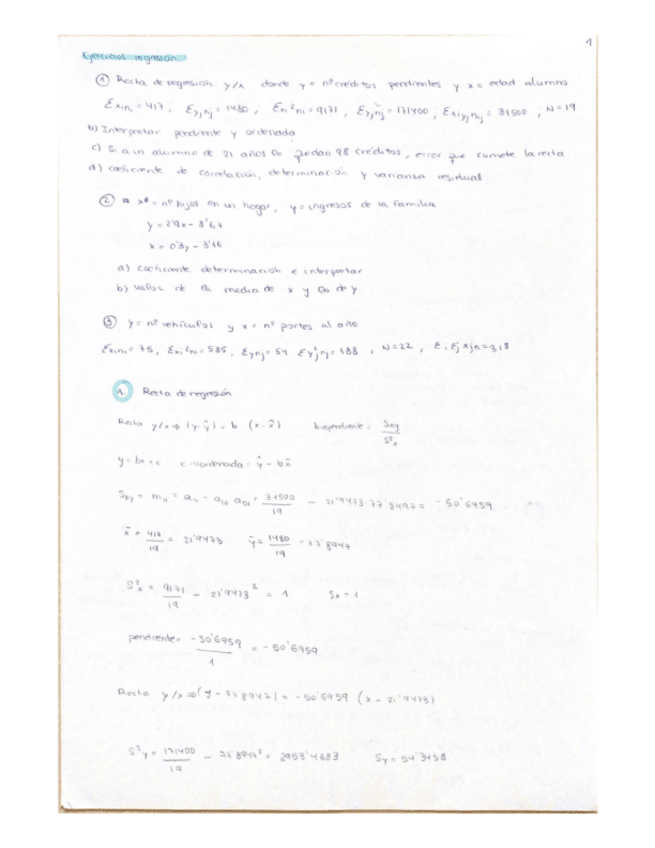 1
Ejercicios regresión
① Recta de regresión y/x donde y = nº créditos pendientes y x = edad alumno
Σxini = 417 ; Σyjnj = 1480 , Σxi²ni = 9171 , Σyj²nj = 171400 , Σxiyjnij = 31500 ; N = 19
b) Interpretar pendiente y ordenada
c) Si a un alumno de 21 años le quedan 98 créditos, error que comete la recta
d) coeficiente de correlación, determinación y varianza residual
② x = nº hijos en un hogar, y = ingresos de la familia
y = 2'9x - 3'67
x = 0'3y - 3'16
a) coeficiente determinación e interpretar
b) valor de la media de x y la de y.
③ y = nº vehículos y x = nº partes al año
Σxini = 75, Σxi²ni = 585, Σyjnj = 54 Σyj²nj = 188 , N = 22 ,
1. Recta de regresión
Recta y/x ⇒ (y - ȳ) = b · (x - x̄) b = pendiente = Sxy / S²x
y = bx + c c = ordenada = ȳ - bx̄
Sxy = m11 = a11 - a10 a01 = 31500/19 - 21'9473 · 77'8947 = -50'6959
x̄ = 417/19 = 21'9473 ȳ = 1480/19 = 77'8947
S²x = 9171/19 - 21'9473² = 1 Sx = 1
pendiente = -50'6959/1 = -50'6959
Recta y/x ⇒ (y - 77'8947) = -50'6959 (x - 21'9473)
S²y = 171400/19 - 77'8947² = 2953'4683 Sy = 54'3458